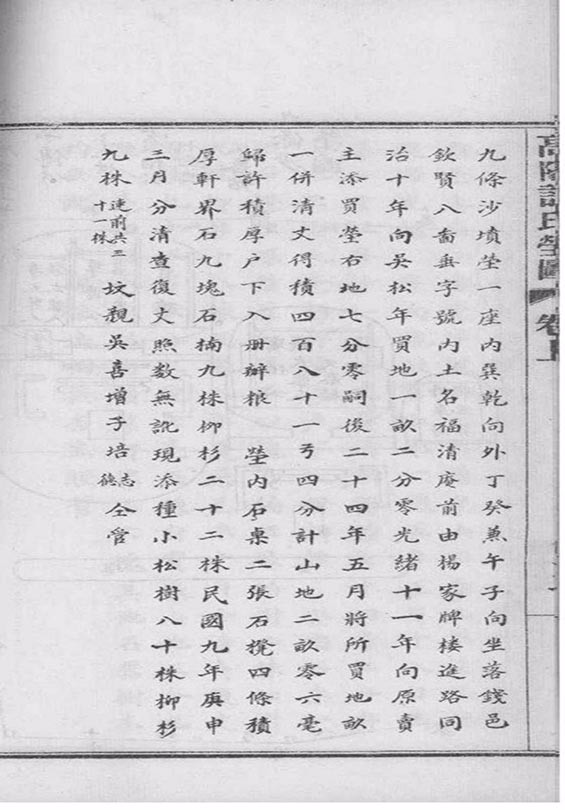 高陽許氏塋圖 卷上
九條沙墳塋一座內巽乾向外丁癸兼午子向坐落錢邑
欽賢八啚垂字號內土名福清庵前由楊家牌楼進路同
治十年向吳松年買地一畝二分零光緒十一年向原賣
主添買塋右地七分零嗣後二十四年五月將所買地畝
一併清丈得積四百八十一弓四分計山地二畝零六毫
歸許積厚户下入册辦粮 塋內石桌二張石櫈四條積
厚軒界石九塊石楠九株柳杉二十二株民國九年庚申
三月分清查復丈照数無訛現添種小松樹八十株柳杉
九株連前共三十一株 坟親吳喜增子培志德仝管